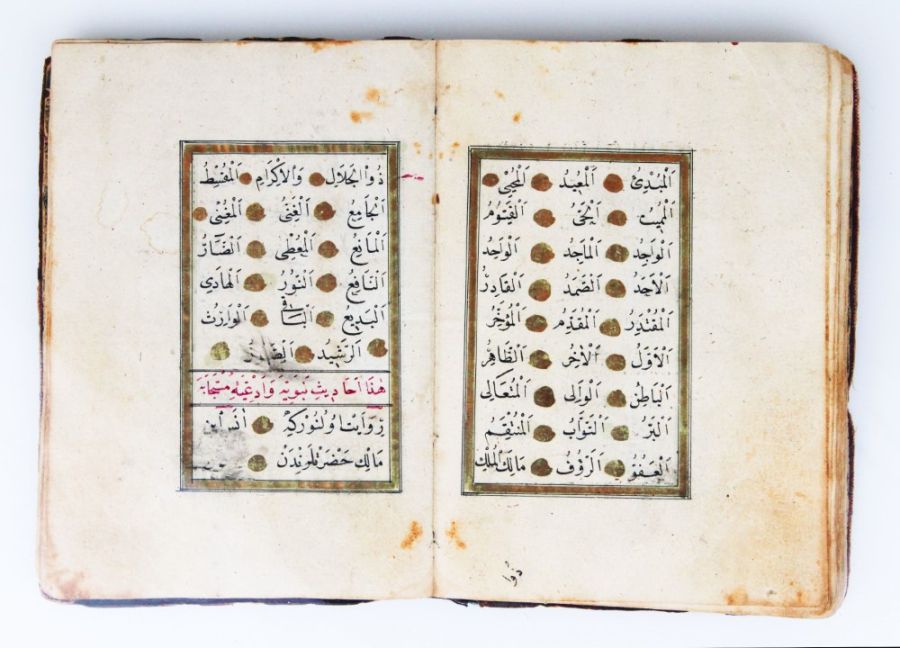 اَلْمُبْدِئُ اَلْمُعِيدُ اَلْمُحْيِي
اَلْمُمِيتُ اَلْحَىُّ اَلْقَيُّومُ
اَلْوَاجِدُ اَلْمَاجِدُ اَلْوَاحِدُ
اَلْاَحَدُ اَلصَّمَدُ اَلْقَادِرُ
اَلْمُقْتَدِرُ اَلْمُقَدِّمُ اَلْمُؤَخِّرُ
اَلْاَوَّلُ اَلْاٰخِرُ اَلظَّاهِرُ
اَلْبَاطِنُ اَلْوَالِى اَلْمُتَعَالِى
اَلْبَرُّ اَلتَّوَّابُ اَلْمُنْتَقِمُ
اَلْعَفُوُّ اَلرَّؤُفُ مَالِكُ الْمُلْكِ
ذوا
ذُوا الْجَلَالِ وَالْاِكْرَامِ اَلْمُقْسِطُ
اَلْجَامِعُ اَلْغَنِىُّ اَلْمُغْنِى
اَلْمَانِعُ اَلْمُعْطِى اَلضَّارُّ
اَلنَّافِعُ اَلنُّورُ اَلْهَادِى
اَلْبَدِيعُ اَلْبَاقِى اَلْوَارِثُ
اَلرَّشِيدُ
هٰذَا اَحَادِيثِ نَبَوِيَّه وَاَدْعِيَۀِ مُسْتَجَابَه
رِوَايَتْ اُولُنُورْكِه اَنَسْ اِبْنِ
مَالِكْ حَضْرَتْلَرِنْدَنْ